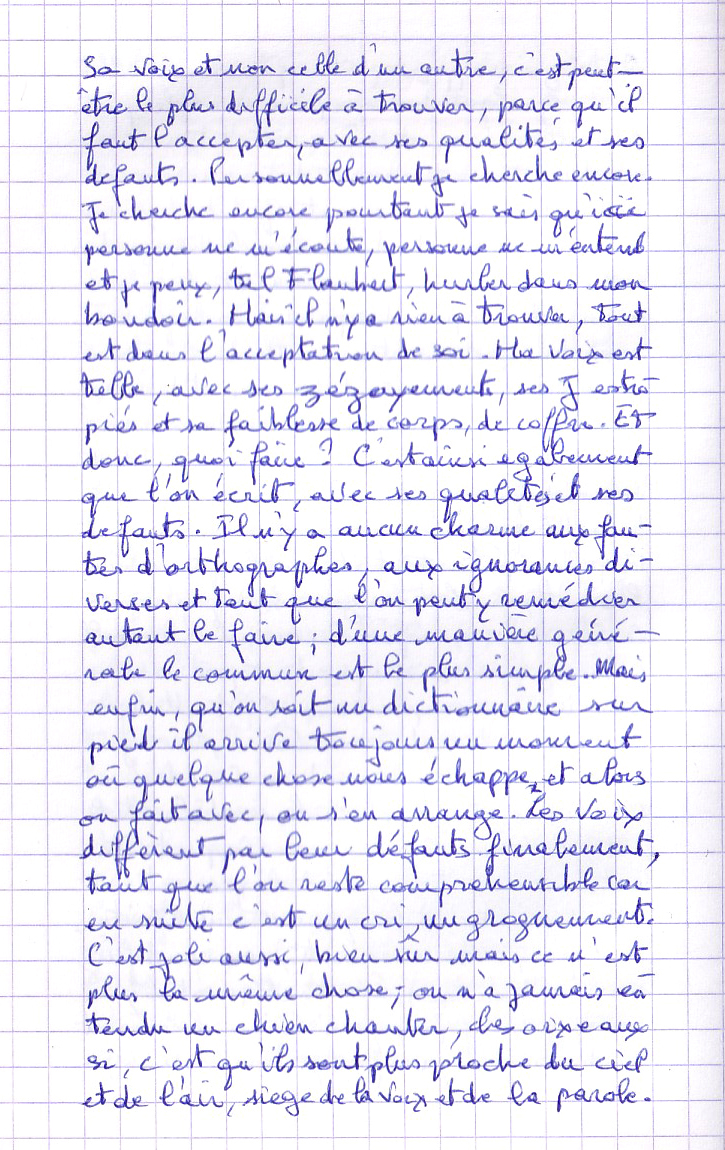 Sa voix et non celle d'un autre, c'est peut-
être le plus difficile à trouver, parce qu'il
faut l'accepter, avec ses qualités et ses
défauts. Personnellement je cherche encore.
Je cherche encore pourtant je sais qu'ici
personne ne m'écoute, personne ne m'entend
et je peux, tel Flaubert, hurler dans mon
boudoir. Mais il n'y a rien à trouver, tout
est dans l'acceptation de soi. Ma voix est
telle, avec ses zézayements, ses J estro
piés et sa faiblesse de corps, de coffre. Et
donc, quoi faire ? C'est ainsi egalement
que l'on écrit, avec ses qualités et ses
defauts. Il n'y a aucun charme aux fau-
tes d'orthographes, aux ignorances di-
verses et tant que l'on peut y remédier
autant le faire ; d'une manière géné-
rale le commun est le plus simple. Mais
enfin, qu'on soit un dictionnaire sur
pied il arrive toujours un moment
où quelque chose nous échappe, et alors
on fait avec, on s'en arrange. Les voix
diffèrent par leur défauts finalement,
tant que l'on reste compréhensible car
en suite c'est un cri, un grognement.
C'est joli aussi, bien sûr mais ce n'est
plus la même chose ; on n'a jamais en
tendu un chien chanter, les oiseaux
si, c'est qu'ils sont plus proche du ciel
et de l'air, siege de la voix et de la parole.